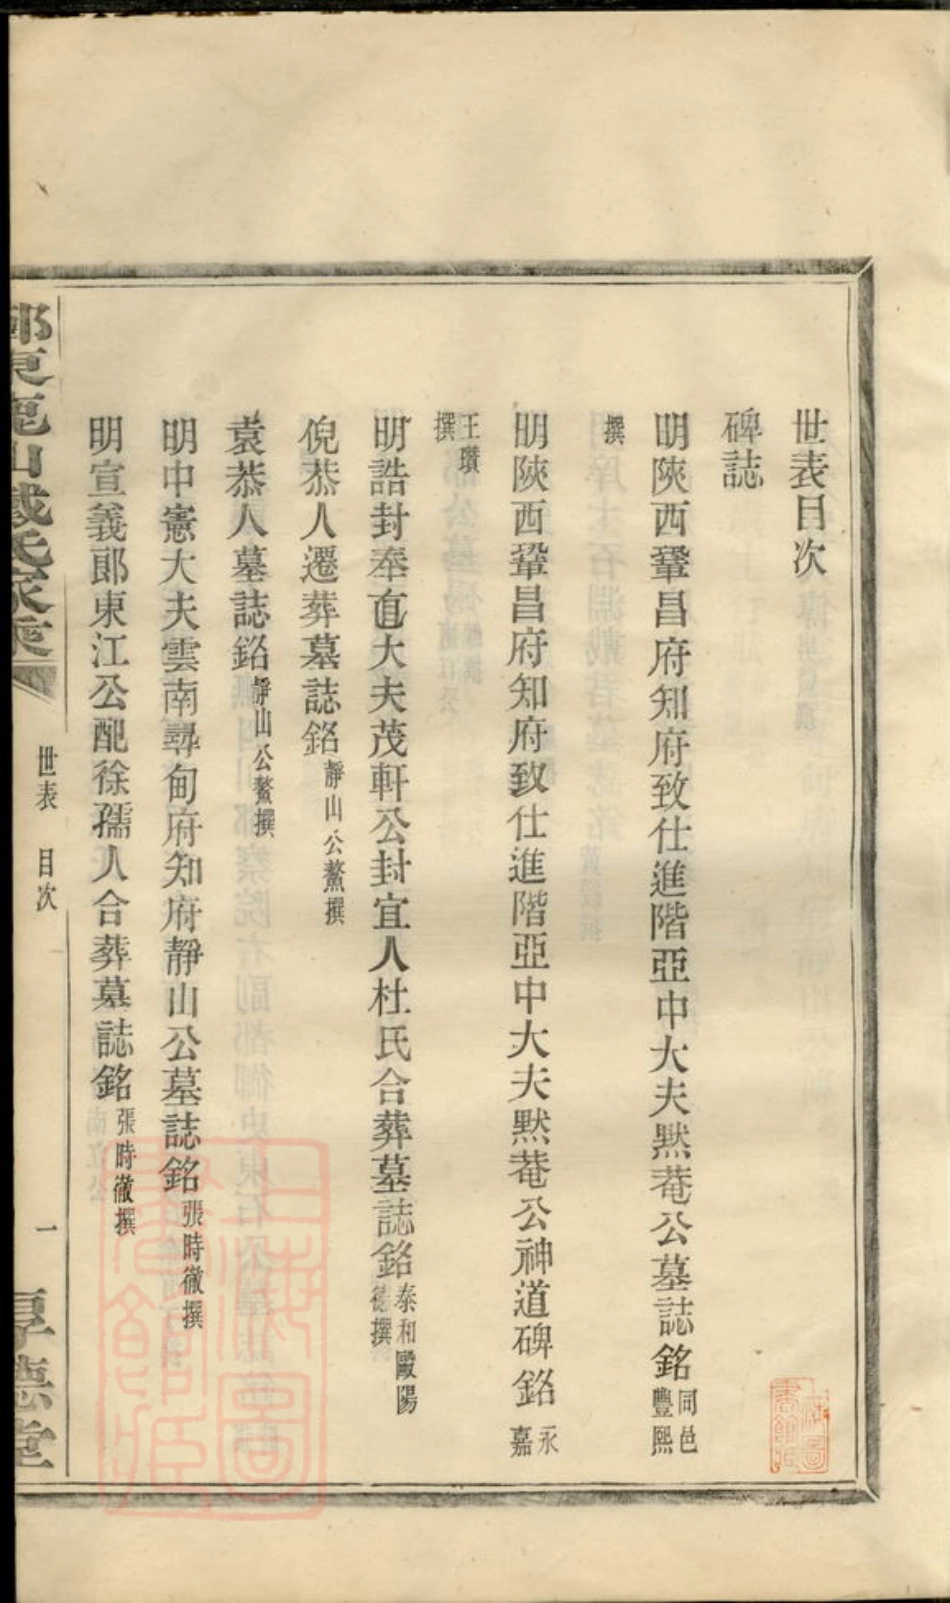 世表目次
碑誌
明陝西鞏昌府知府致仕進階亞中大夫默菴公墓誌銘同邑豐熙
撰
明陝西鞏昌府知府致仕進階亞中大夫默菴公神道碑銘永嘉
王瓚撰
明誥封奉直大夫茂軒公封宜人杜氏合葬墓誌銘泰和歐陽德撰
倪恭人遷葬墓誌銘靜山公鰲撰
袁恭人墓誌銘靜山公鰲撰
明中憲大夫雲南尋甸府知府靜山公墓誌銘張時徹撰
明宣義郎東江公配徐孺人合葬墓誌銘張時徹撰
鄞東鹿山戴氏家乘
世表 目次
一
厚德堂
上海圖書館藏